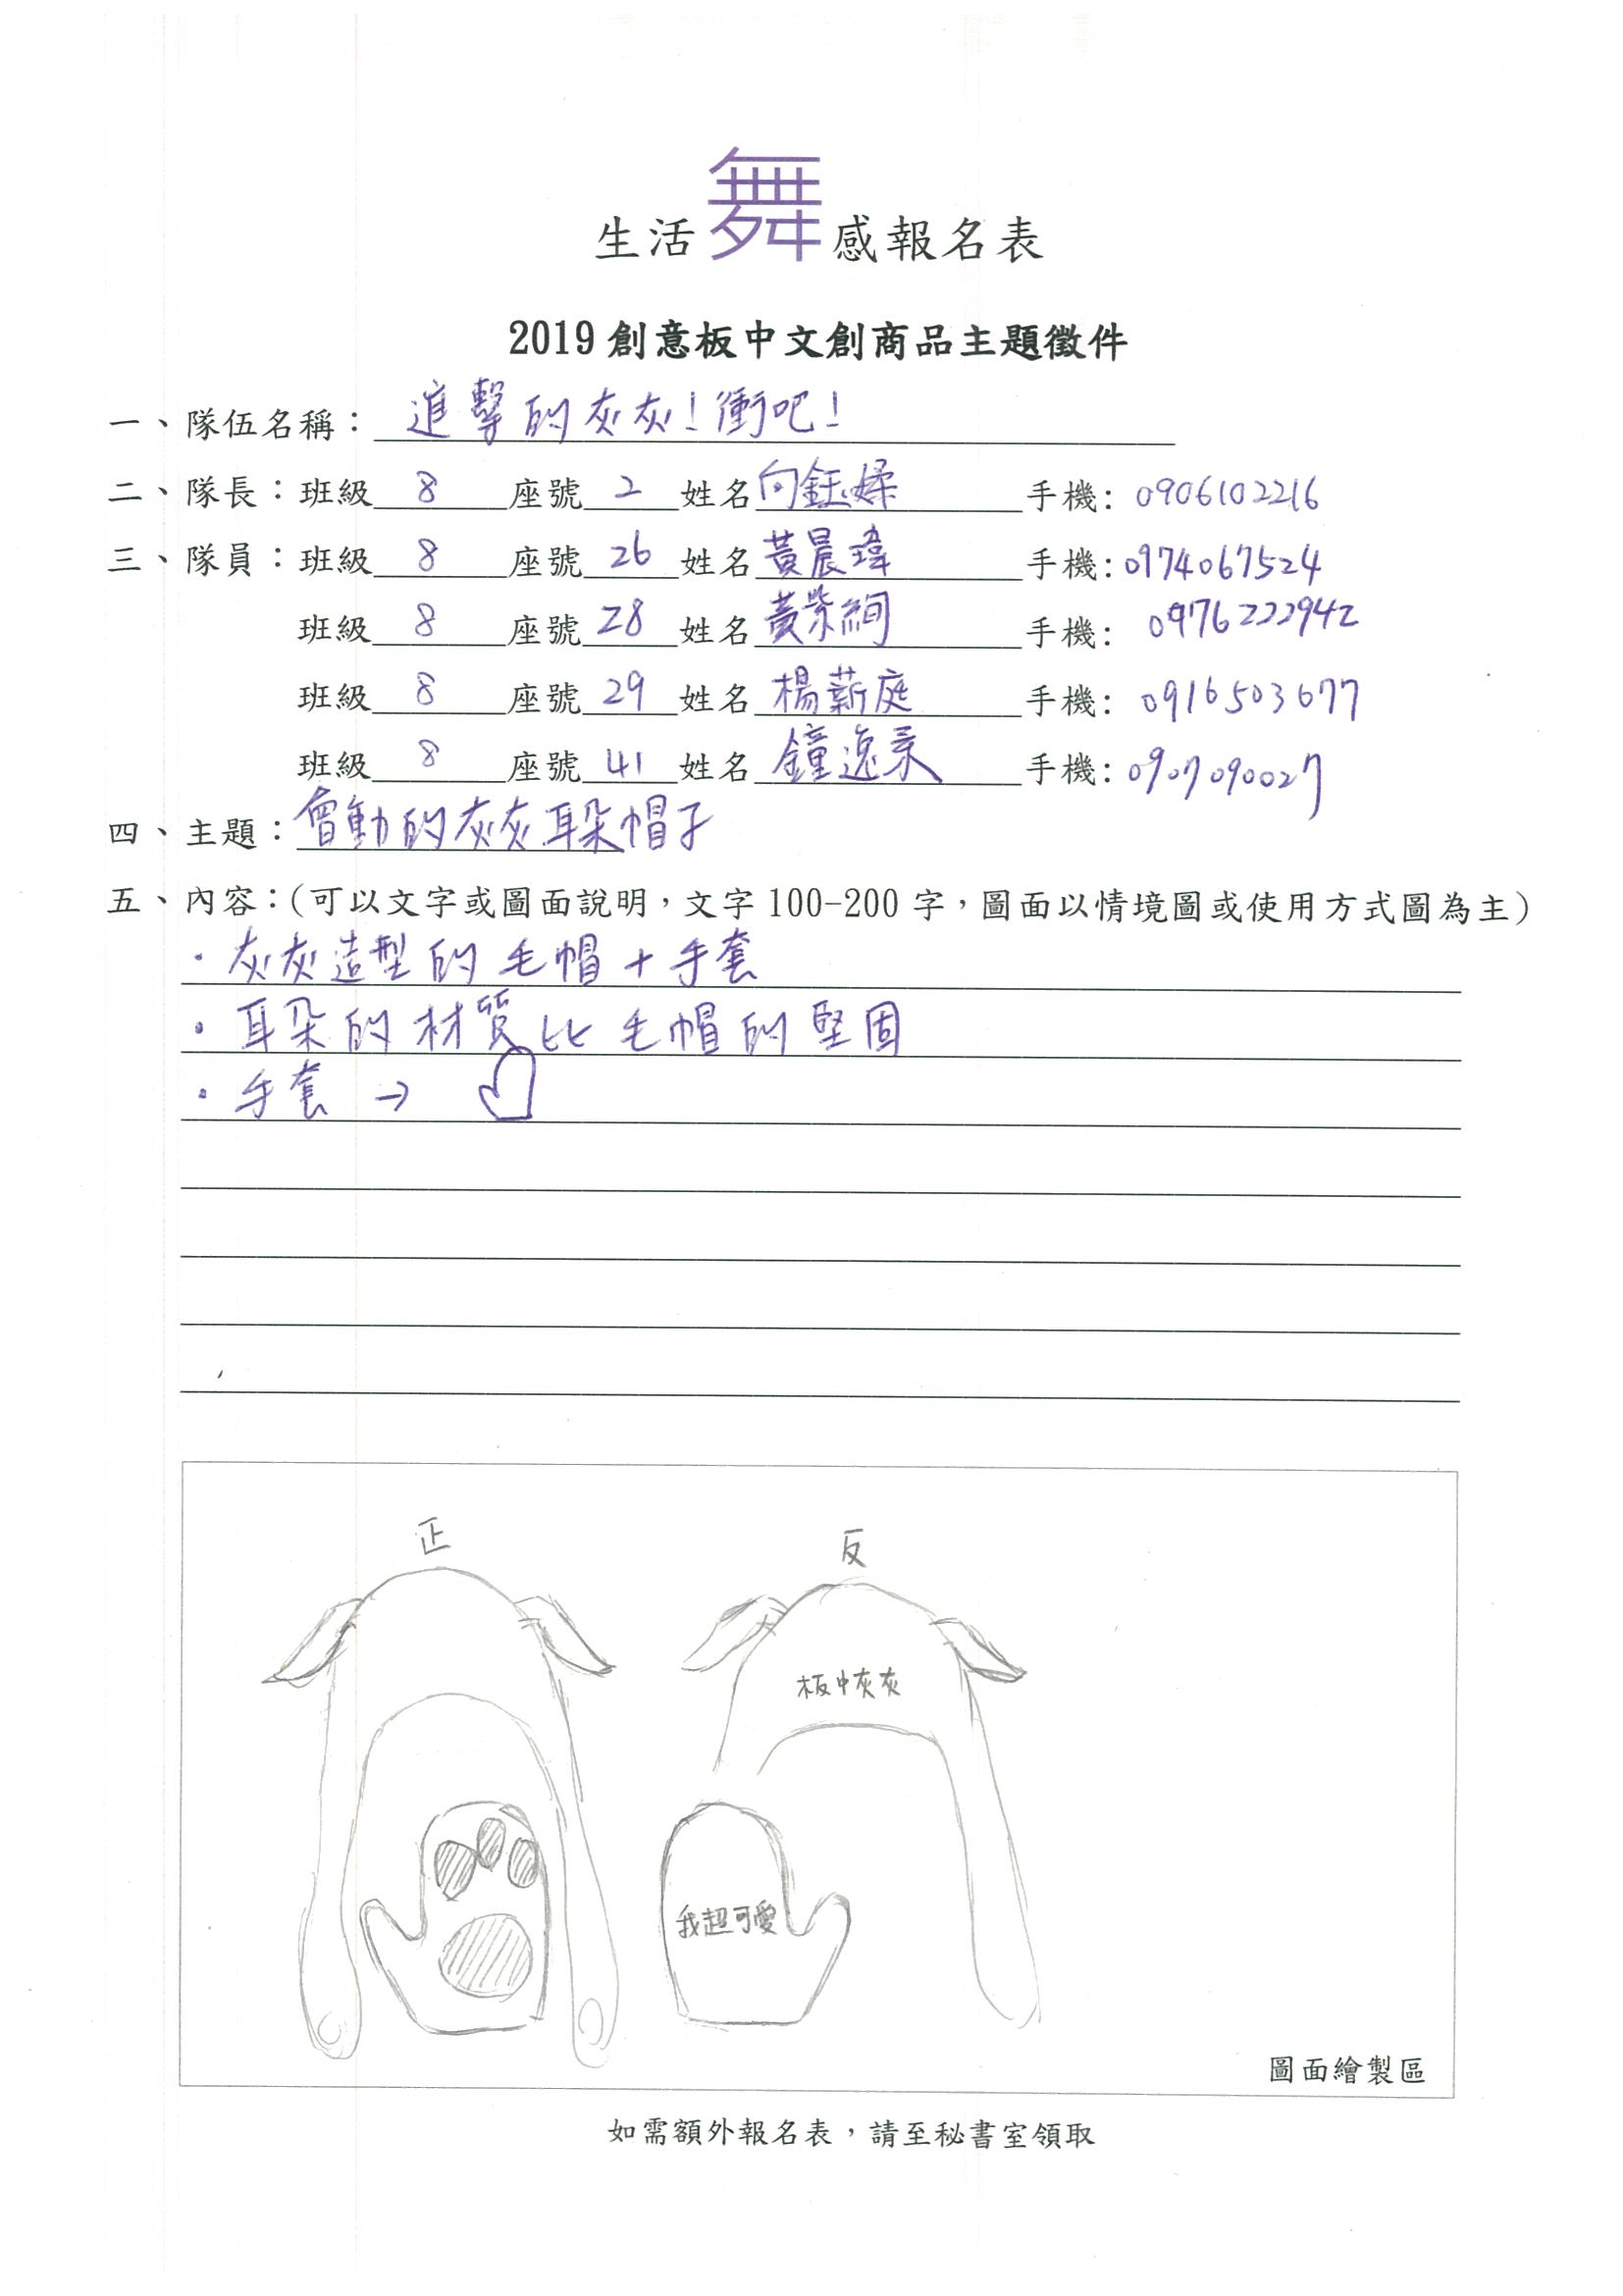 生活舞感報名表
2019創意板中文創商品主題徵件
一、隊伍名稱：進擊的灰灰！衝吧！
二、隊長：班級 8 座號 2 姓名 向鈺媃 手機: 0906102216
三、隊員：班級 8 座號 26 姓名 黃晨瑋 手機: 0974067524
班級 8 座號 28 姓名 黃紫絢 手機: 0976222942
班級 8 座號 29 姓名 楊薪庭 手機: 0916503677
班級 8 座號 41 姓名 鐘逸 手機: 0907090027
四、主題：會動的灰灰耳朵帽子
五、內容：(可以文字或圖面說明，文字100-200字，圖面以情境圖或使用方式圖為主)
·灰灰造型的毛帽+手套
·耳朵的材質比毛帽的堅固
·手套→
正 反
板中灰灰
我超可愛
圖面繪製區
如需額外報名表，請至秘書室領取